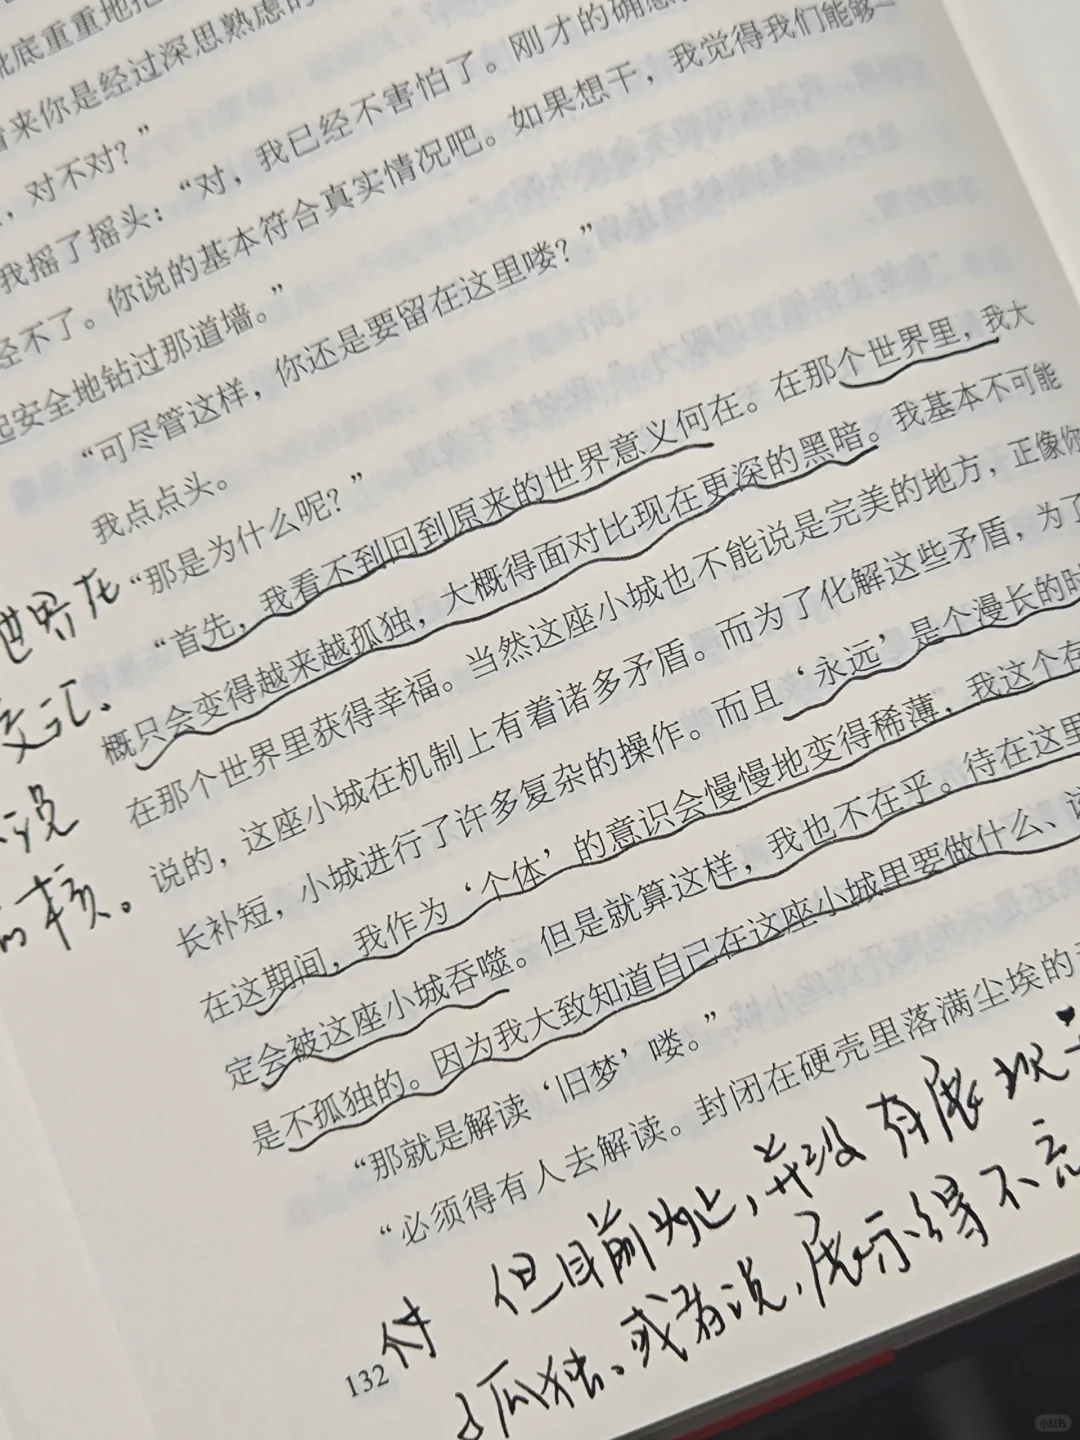 靴底重重地把
看来你是经过深思熟虑的
，对不对？”
我摇了摇头：“对，我已经不害怕了。刚才的确感
经不了。你说的基本符合真实情况吧。如果想干，我觉得我们能够一
起安全地钻过那道墙。”
“可尽管这样，你还是要留在这里喽？”
我点点头。
“那是为什么呢？”
“首先，我看不到回到原来的世界意义何在。在那个世界里，我大
概只会变得越来越孤独，大概得面对比现在更深的黑暗。我基本不可能
在那个世界里获得幸福。当然这座小城也不能说是完美的地方，正像你
说的，这座小城在机制上有着诸多矛盾。而为了化解这些矛盾，为了
长补短，小城进行了许多复杂的操作。而且‘永远’是个漫长的时
在这期间，我作为‘个体’的意识会慢慢地变得稀薄，我这个存
定会被这座小城吞噬。但是就算这样，我也不在乎。待在这里
是不孤独的。因为我大致知道自己在这座小城里要做什么、该
“那就是解读‘旧梦’喽。”
“必须得有人去解读。封闭在硬壳里落满尘埃的
世界在
交汇、
说
的核。
但目前为止，并没有展现
孤独、或者说，展示得不
132
小红书